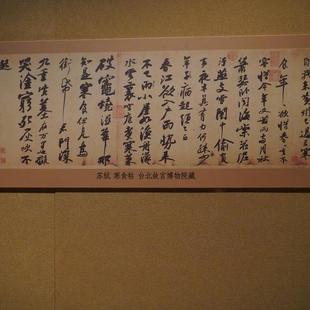 自我來黃州已過三寒
食年〻欲惜春春去不
容惜今年又苦雨兩月秋
蕭瑟卧聞海棠花泥
汙燕支雪闇中偷負
去夜半真有力何殊
年子病起頭已白
春江欲入戶雨勢來
不已雨小屋如漁舟濛〻
水雲裏空庖煮寒菜
破竈燒濕葦那
知是寒食但見烏
銜帋君門深
九重墳墓在万里也擬
哭塗窮死灰吹不
起
苏轼 寒食帖 台北故宫博物院藏